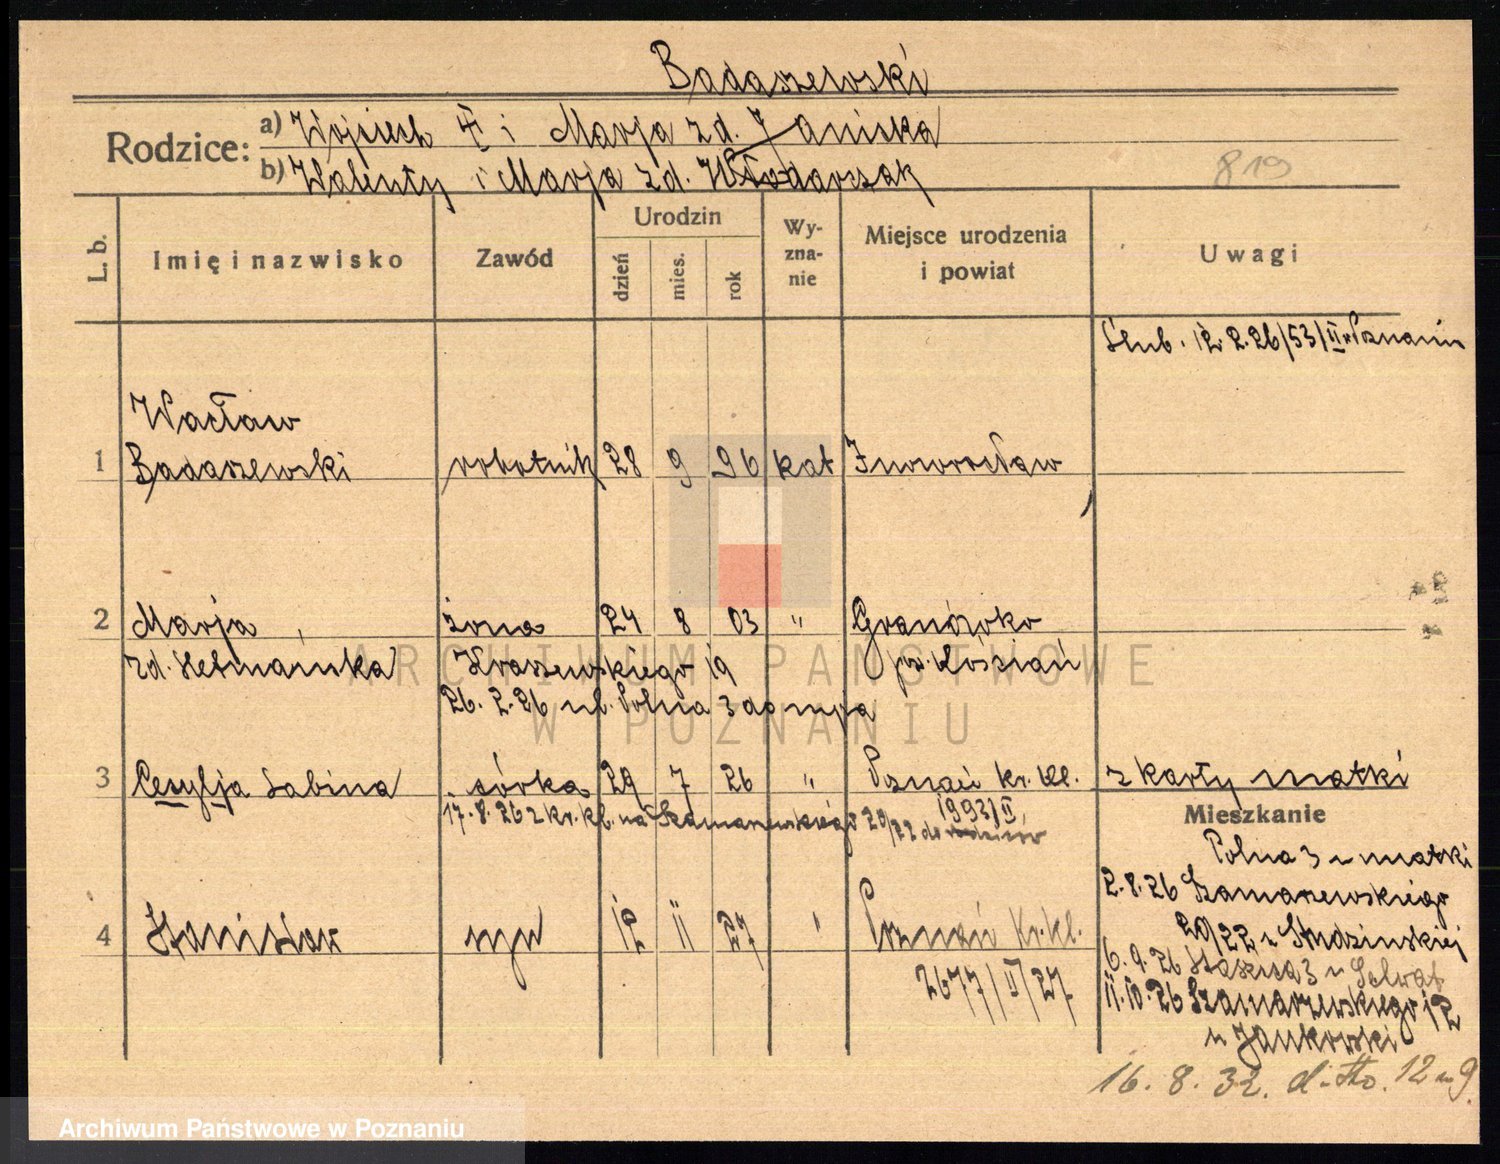 Badaszewski
Rodzice:
a) Wojciech i Marja zd. Janiska
b) Walenty i Marja zd. Włodarczak
819
L. b.
Imię i nazwisko
Zawód
Urodzin
dzień
mies.
rok
Wy-
zna-
nie
Miejsce urodzenia
i powiat
Uwagi
Ślub. 12 2. 26/53/II w Poznaniu
Wacław
1 Badaszewski robotnik 28 9 96 kat Inowrocław
2 Marja żona 24 8 03 " Granówko
zd. Hetmańska Kraszewskiego 19 pw. Kościan
26. 2. 26 ul. Polna 3 do męża
3 Cecylja Sabina córka 29 7 26 " Poznań kr. kl. z karty matki
1993/II
17. 8. 26 z kr. kl. na Szamarzewskiego 20/22 do rodziców
Mieszkanie
Polna 3 u matki
2. 8. 26 Szamarzewskiego
4 Stanisław syn 12 11 27 " Poznań kr. kl.
20/22 u Studzinskiej
2677/II/27
6. 9. 26 Staszica 3 u Selwat
11. 10. 26 Szamarzewskiego 12
u Jankowski
16. 8. 32. ditto. 12 m 9
ARCHIWUM PAŃSTWOWE
W POZNANIU
Archiwum Państwowe w Poznaniu